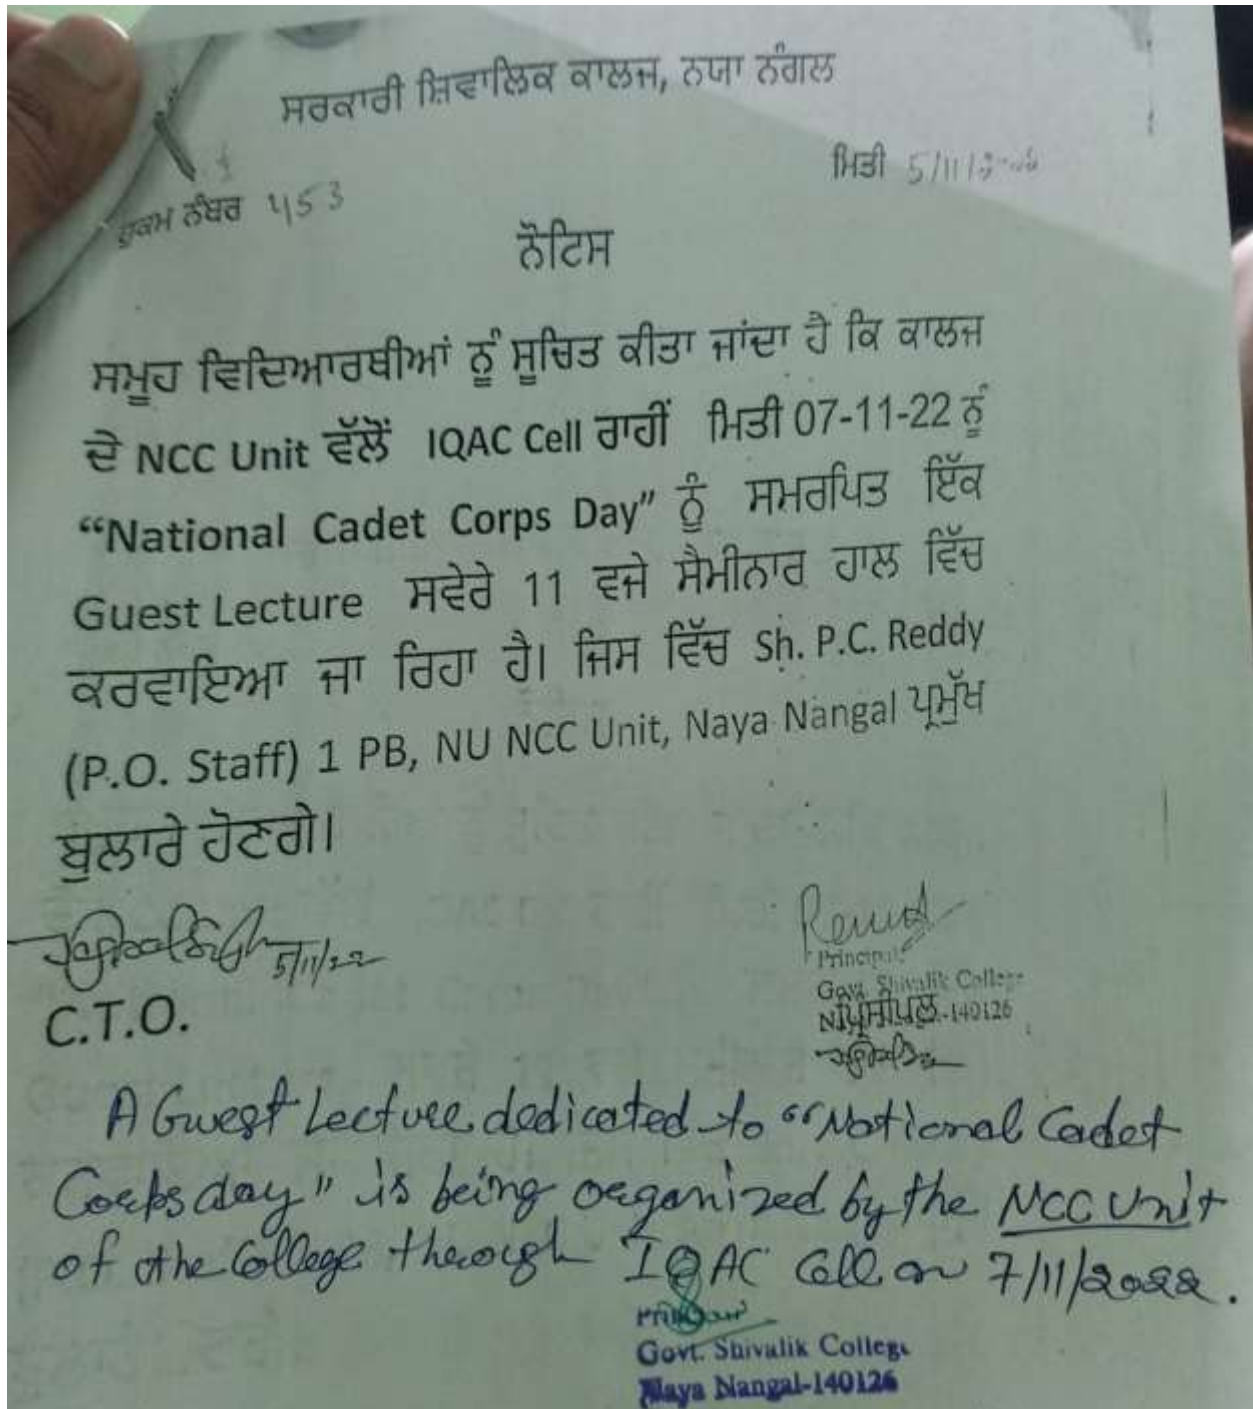 ਸਰਕਾਰੀ ਸ਼ਿਵਾਲਿਕ ਕਾਲਜ, ਨਯਾ ਨੰਗਲ
ਮਿਤੀ 5/11/
ਹੁਕਮ ਨੰਬਰ 453
ਨੋਟਿਸ
ਸਮੂਹ ਵਿਦਿਆਰਥੀਆਂ ਨੂੰ ਸੂਚਿਤ ਕੀਤਾ ਜਾਂਦਾ ਹੈ ਕਿ ਕਾਲਜ
ਦੇ NCC Unit ਵੱਲੋਂ IQAC Cell ਰਾਹੀਂ ਮਿਤੀ 07-11-22 ਨੂੰ
“National Cadet Corps Day” ਨੂੰ ਸਮਰਪਿਤ ਇੱਕ
Guest Lecture ਸਵੇਰੇ 11 ਵਜੇ ਸੈਮੀਨਾਰ ਹਾਲ ਵਿੱਚ
ਕਰਵਾਇਆ ਜਾ ਰਿਹਾ ਹੈ। ਜਿਸ ਵਿੱਚ Sh. P.C. Reddy
(P.O. Staff) 1 PB, NU NCC Unit, Naya Nangal ਪ੍ਰਮੁੱਖ
ਬੁਲਾਰੇ ਹੋਣਗੇ।
5/11/22
C.T.O.
Principal
Govt. Shivalik College
ਪ੍ਰਿੰਸੀਪਲ -140126
A Guest Lecture dedicated to “National Cadet
Corps day" is being organized by the NCC Unit
of the College through IQAC Cell on 7/11/2022.
Principal
Govt. Shivalik College
Naya Nangal-140126